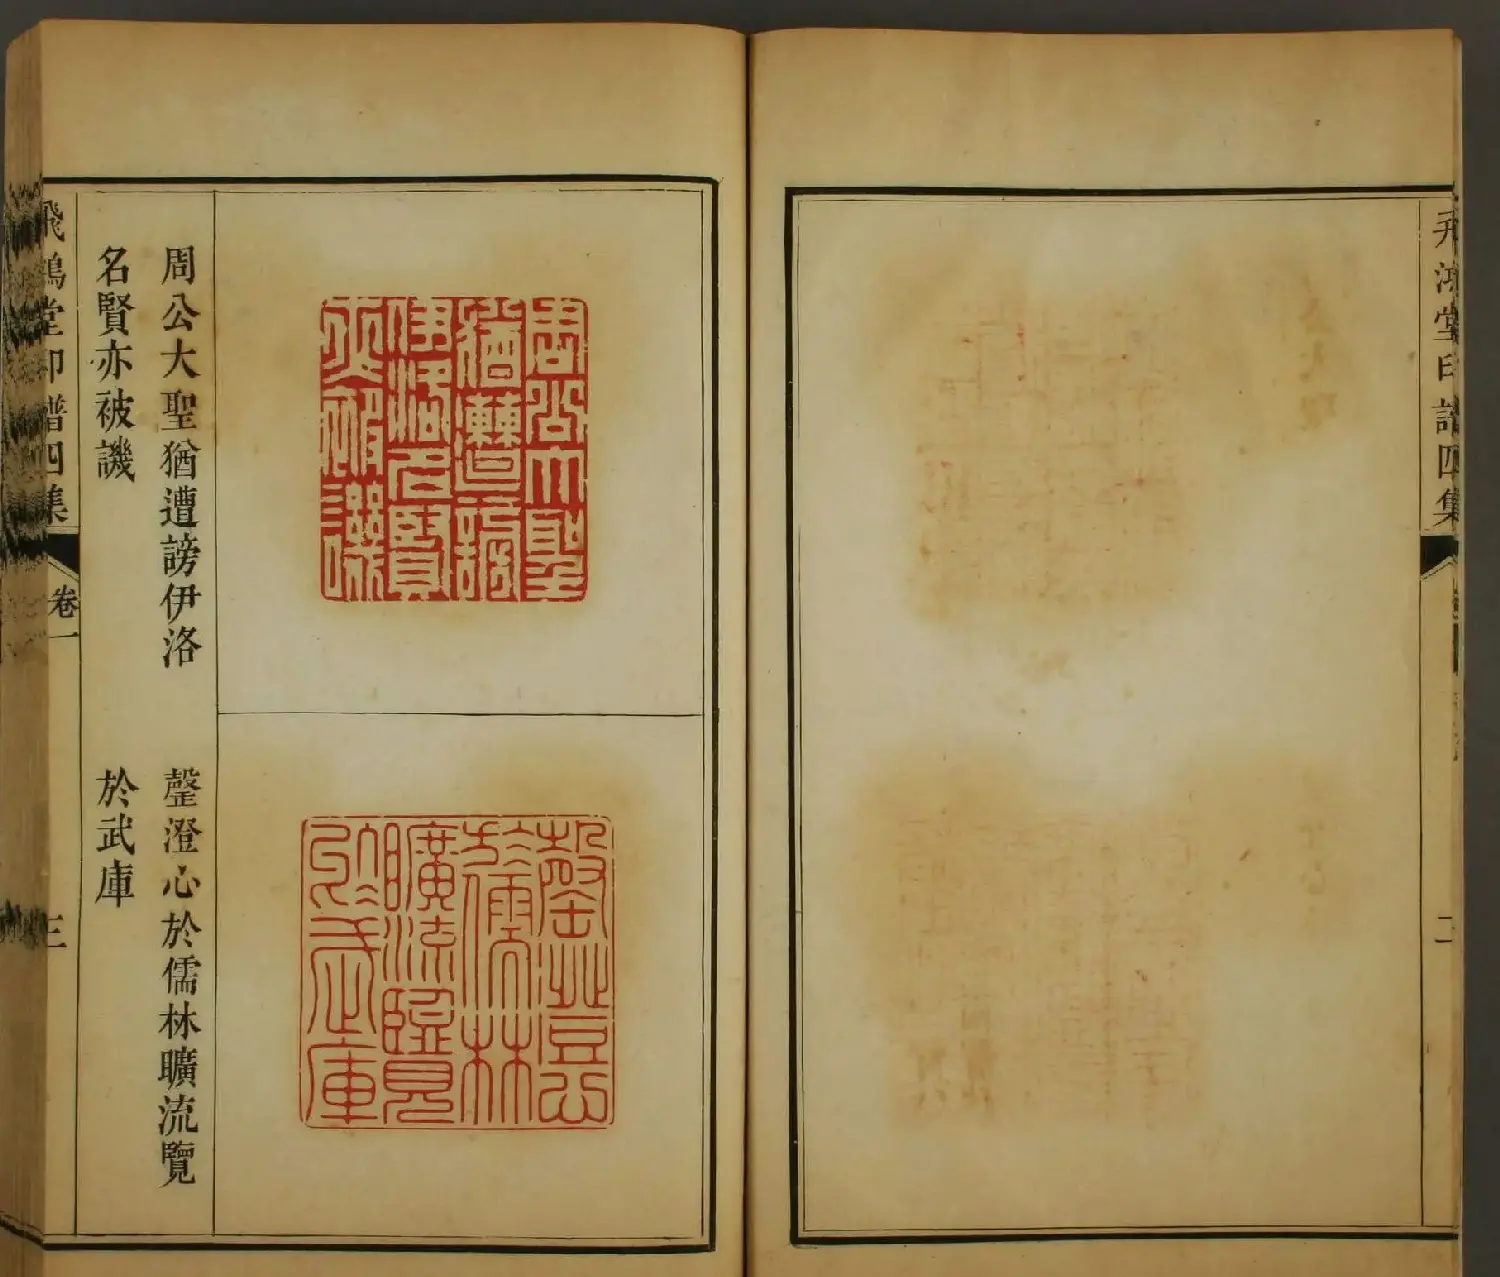 飛鴻堂印譜四集
二
周公大聖
猶遭謗
伊洛名賢
亦被譏
罄澄心
於儒林
曠流覽
於武庫
周公大聖猶遭謗伊洛
名賢亦被譏
罄澄心於儒林曠流覽
於武庫
飛鴻堂印譜四集
卷一
三